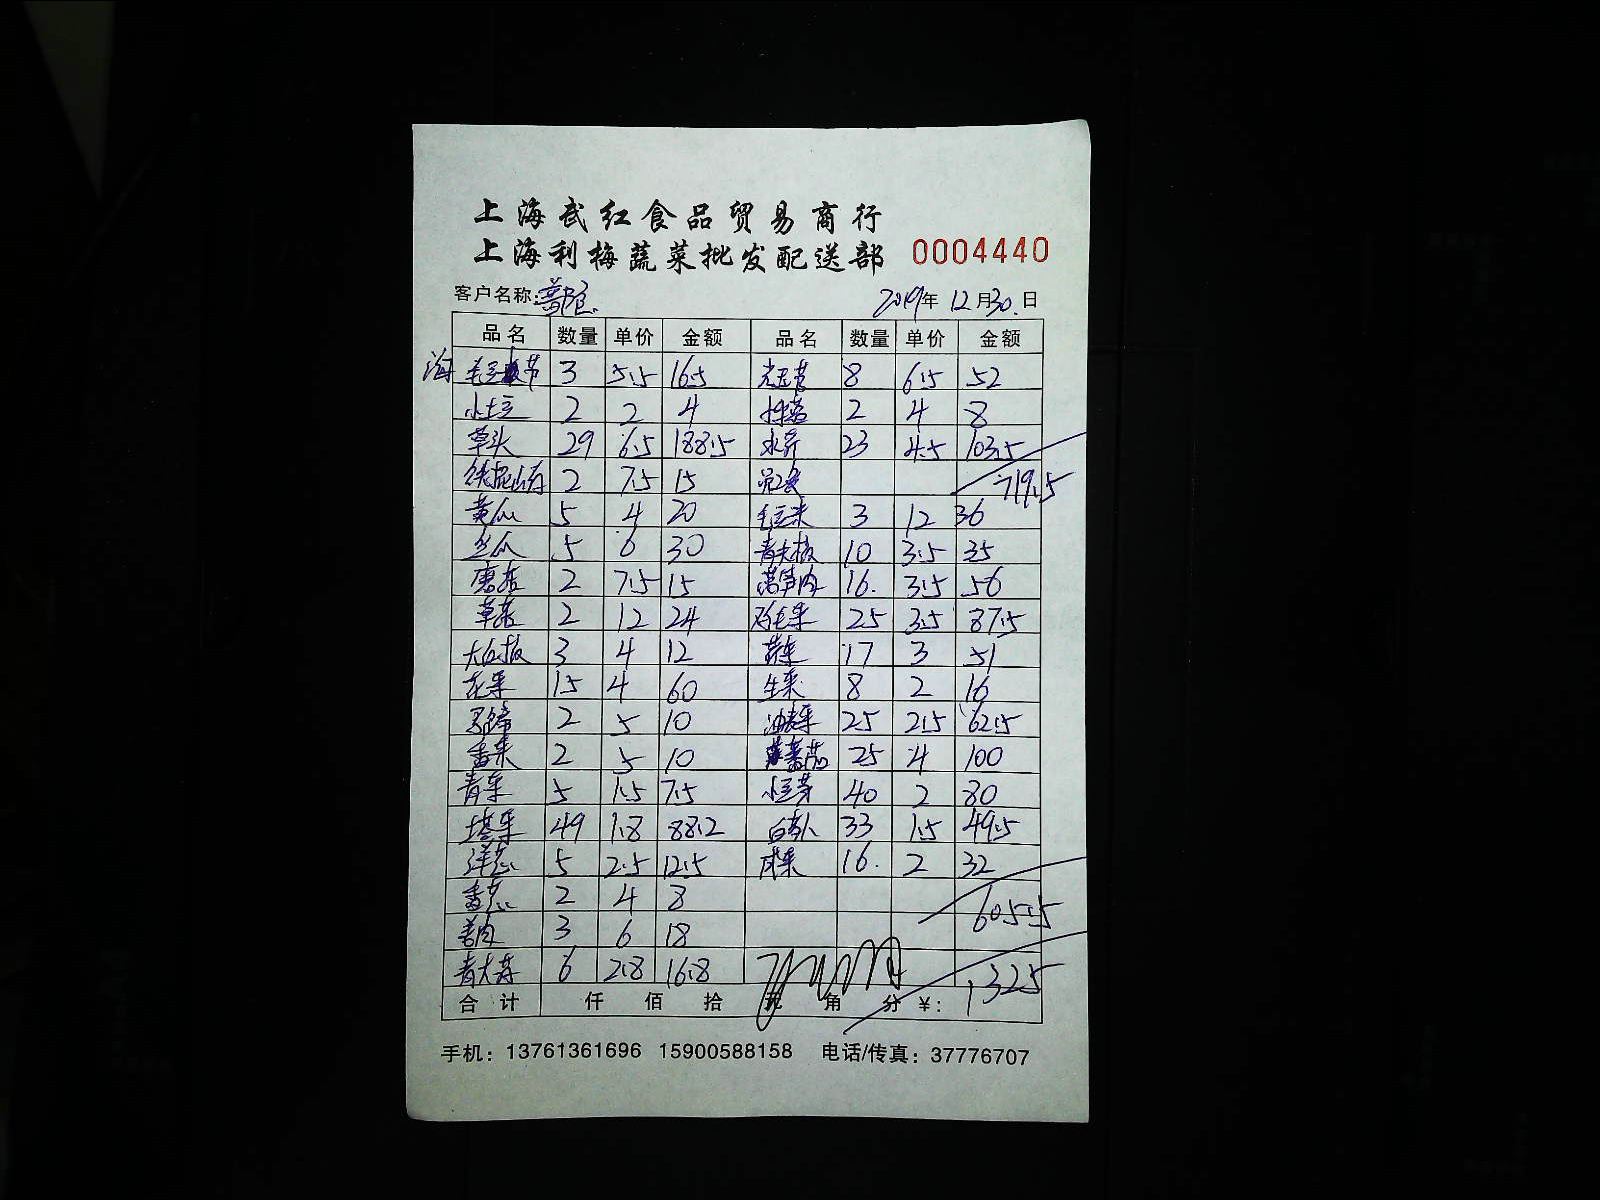 上海武红食品贸易商行
上海利梅蔬菜批发配送部 0004440
客户名称: 2019年12月30日
品名 数量 单价 金额 品名 数量 单价 金额
海 3 5.5 16.5 8 6.5 52
小土豆 2 2 4 2 4 8
草头 29 6.5 188.5 水芹 23 4.5 103.5
铁棍山药 2 7.5 15 719.5
黄瓜 5 4 20 毛豆米 3 12 36
丝瓜 5 6 30 青大椒 10 3.5 35
唐菇 2 7.5 15 莴笋肉 16. 3.5 56
草菇 2 12 24 鸡毛菜 25 3.5 87.5
3 4 12 17 3 51
花菜 15 4 60 生菜 8 2 16
2 5 10 油麦菜 25 2.5 62.5
香菜 2 5 10 蕃茄 25 4 100
青菜 5 1.5 7.5 小豆芽 40 2 80
塔菜 49 1.8 88.2 白萝卜 33 1.5 49.5
洋葱 5 2.5 12.5 咸菜 16. 2 32
香葱 2 4 8 605.5
姜肉 3 6 18
青大蒜 6 2.8 16.8
合计 仟 佰 拾 元 角 分 ¥: 1325
手机：13761361696 15900588158 电话/传真：37776707